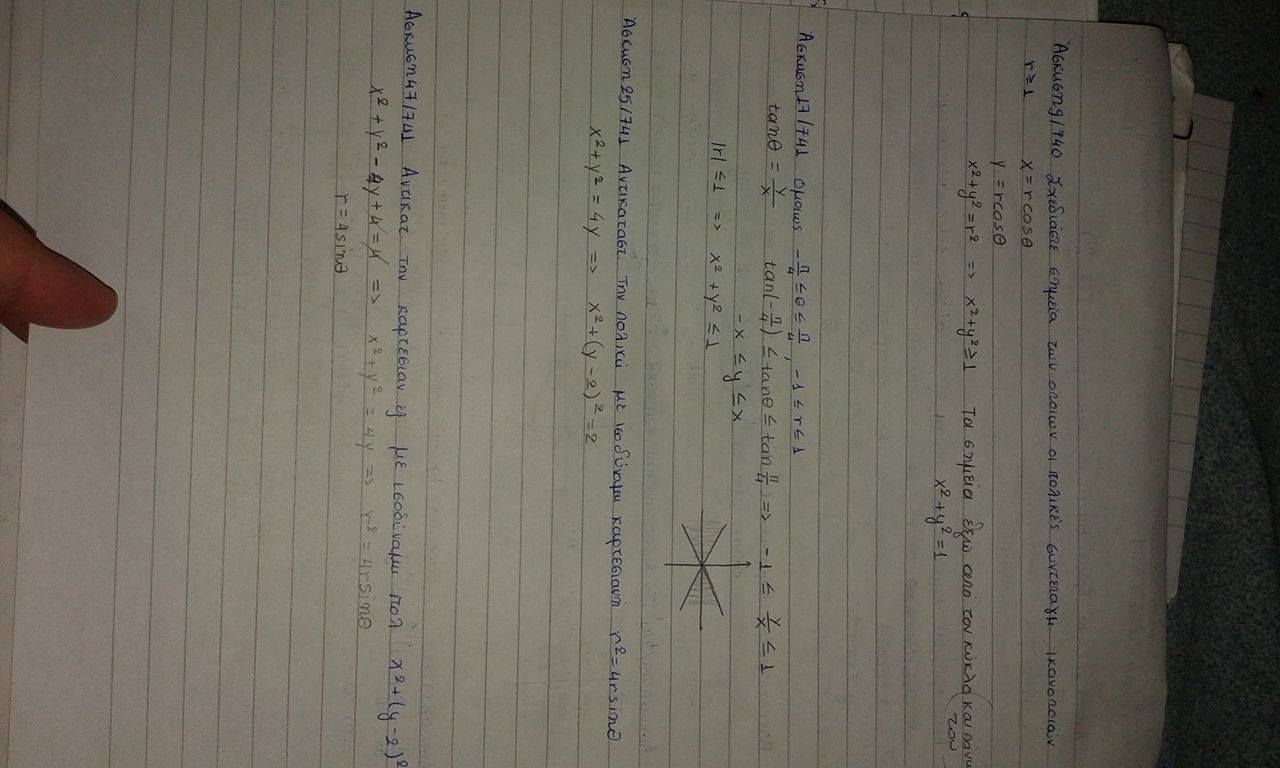 Άσκηση 9/740 Σχεδιάστε σημεία των οποίων οι πολικές συντεταγμ. ικανοποιούν
r≥1 x=rcosθ
y=rcosθ
x²+y²=r² => x²+y²≥1 Τα σημεία έξω από τον κύκλο και πάνω του
x²+y²=1
Άσκηση 17/741 Ομοίως -π/4 ≤ θ ≤ π/4, -1 ≤ r ≤ 1
tanθ = y/x tan(-π/4) ≤ tanθ ≤ tan π/4) => -1 ≤ y/x ≤ 1
-x ≤ y ≤ x
|r| ≤ 1 => x²+y² ≤ 1
Άσκηση 25/741 Αντικαταστ την πολική με ισοδύναμη καρτεσιανή r²=4rsinθ
x²+y²=4y => x²+(y-2)²=2
Άσκηση 47/741 Αντικατ την καρτεσιαν εξ με ισοδύναμη πολ x²+(y-2)²
x²+y²-4y+4=4 => x²+y²=4y => r²=4rsinθ
r=4sinθ